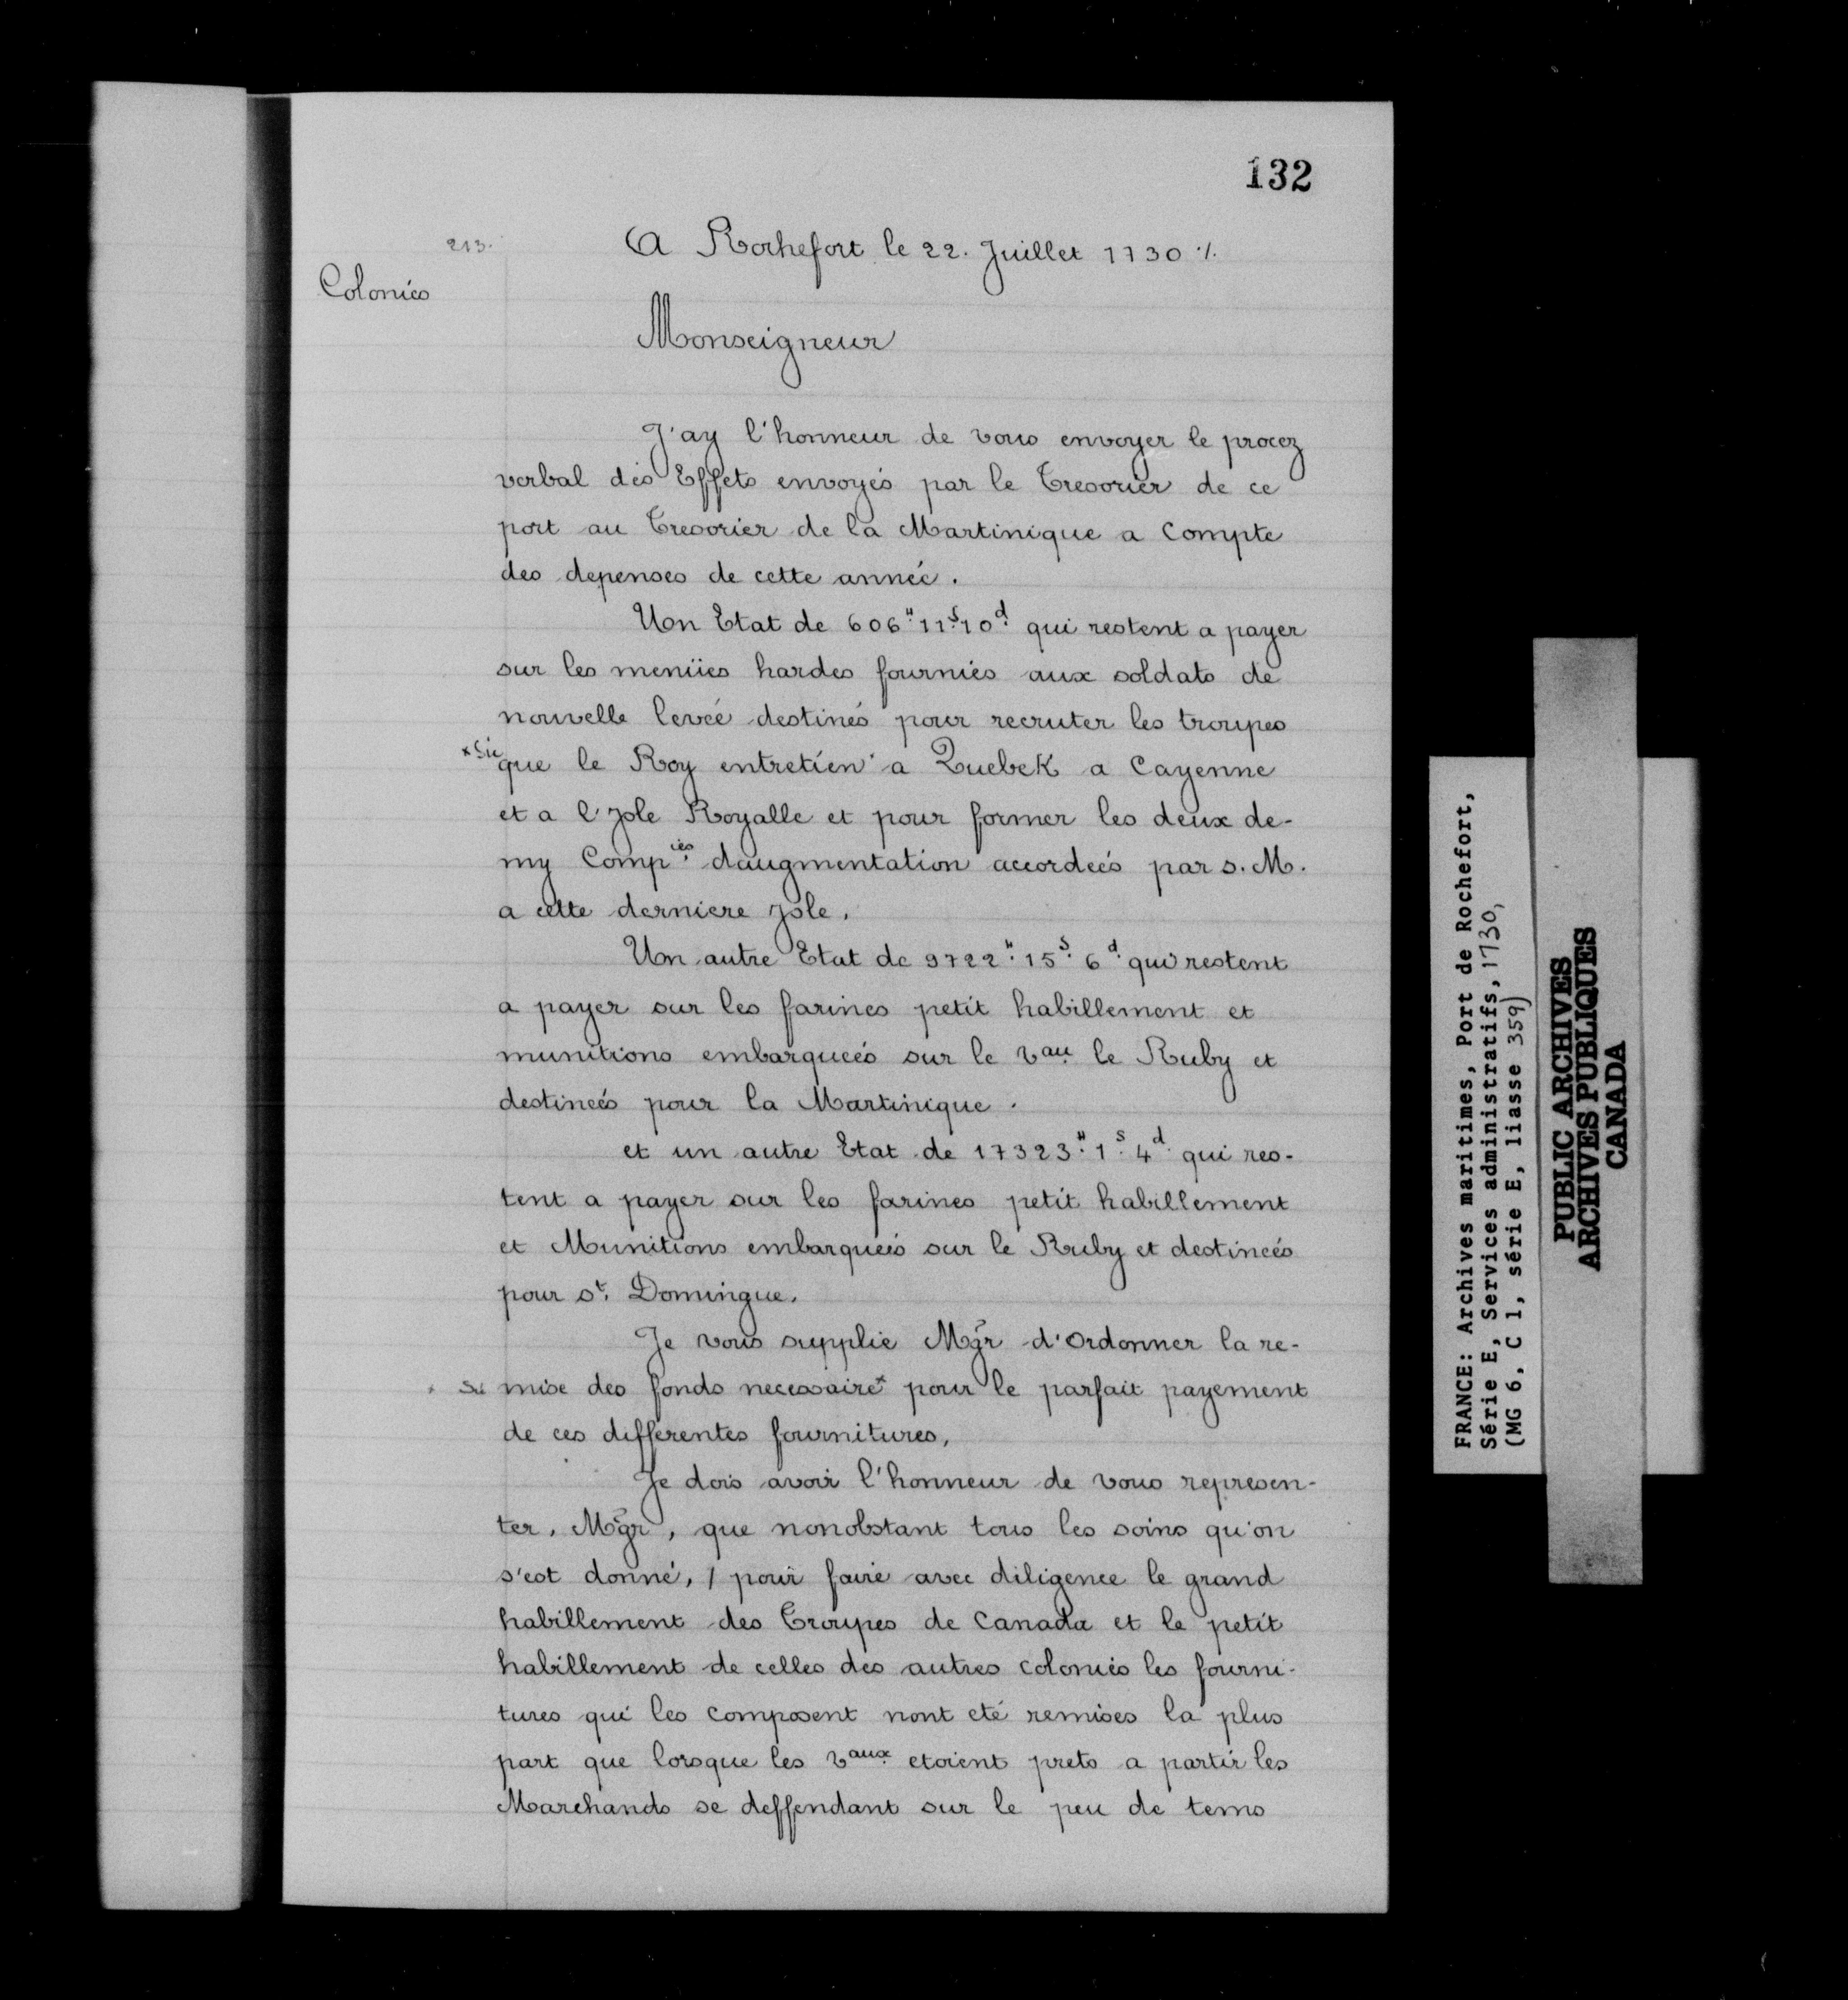 132
213.
A Rochefort le 22. Juillet 1730 %.
Colonies
Monseigneur
J'ay l'honneur de vous envoyer le procez
verbal des Effets envoyés par le Tresorier de ce
port au Tresorier de la Martinique a Compte
des depenses de cette année.
Un Etat de 606# 11s 10d qui restent a payer
sur les menües hardes fournies aux soldats de
nouvelle levée destinés pour recruter les troupes
* Sic que le Roy entretien* a Quebek a Cayenne
et a l'Jsle Royalle et pour former les deux de-
my Compies daugmentation accordées par S. M.
a cette derniere Jsle.
Un autre Etat de 9722# 15s 6d qui restent
a payer sur les farines petit habillement et
munitions embarquées sur le Vau le Ruby et
destinées pour la Martinique.
et un autre Etat de 17323# 1s 4d qui res-
tent a payer sur les farines petit habillement
et Munitions embarquées sur le Ruby et destinées
pour St. Domingue.
Je vous supplie Mgr d'Ordonner la re-
* Sic mise des fonds necessaire* pour le parfait payement
de ces différentes fournitures.
Je dois avoir l'honneur de vous represen-
ter, Mgr, que nonobstant tous les soins qu'on
s'est donné, / pour faire avec diligence le grand
habillement des Troupes de Canada et le petit
habillement de celles des autres colonies les fourni-
tures qui les composent nont eté remises la plus
part que lorsque les Vaux etoient prets a partir les
Marchands se deffendant sur le peu de tems
FRANCE: Archives maritimes, Port de Rochefort,
Série E, Services administratifs, 1730,
(MG 6, C 1, série E, liasse 359)
PUBLIC ARCHIVES
ARCHIVES PUBLIQUES
CANADA